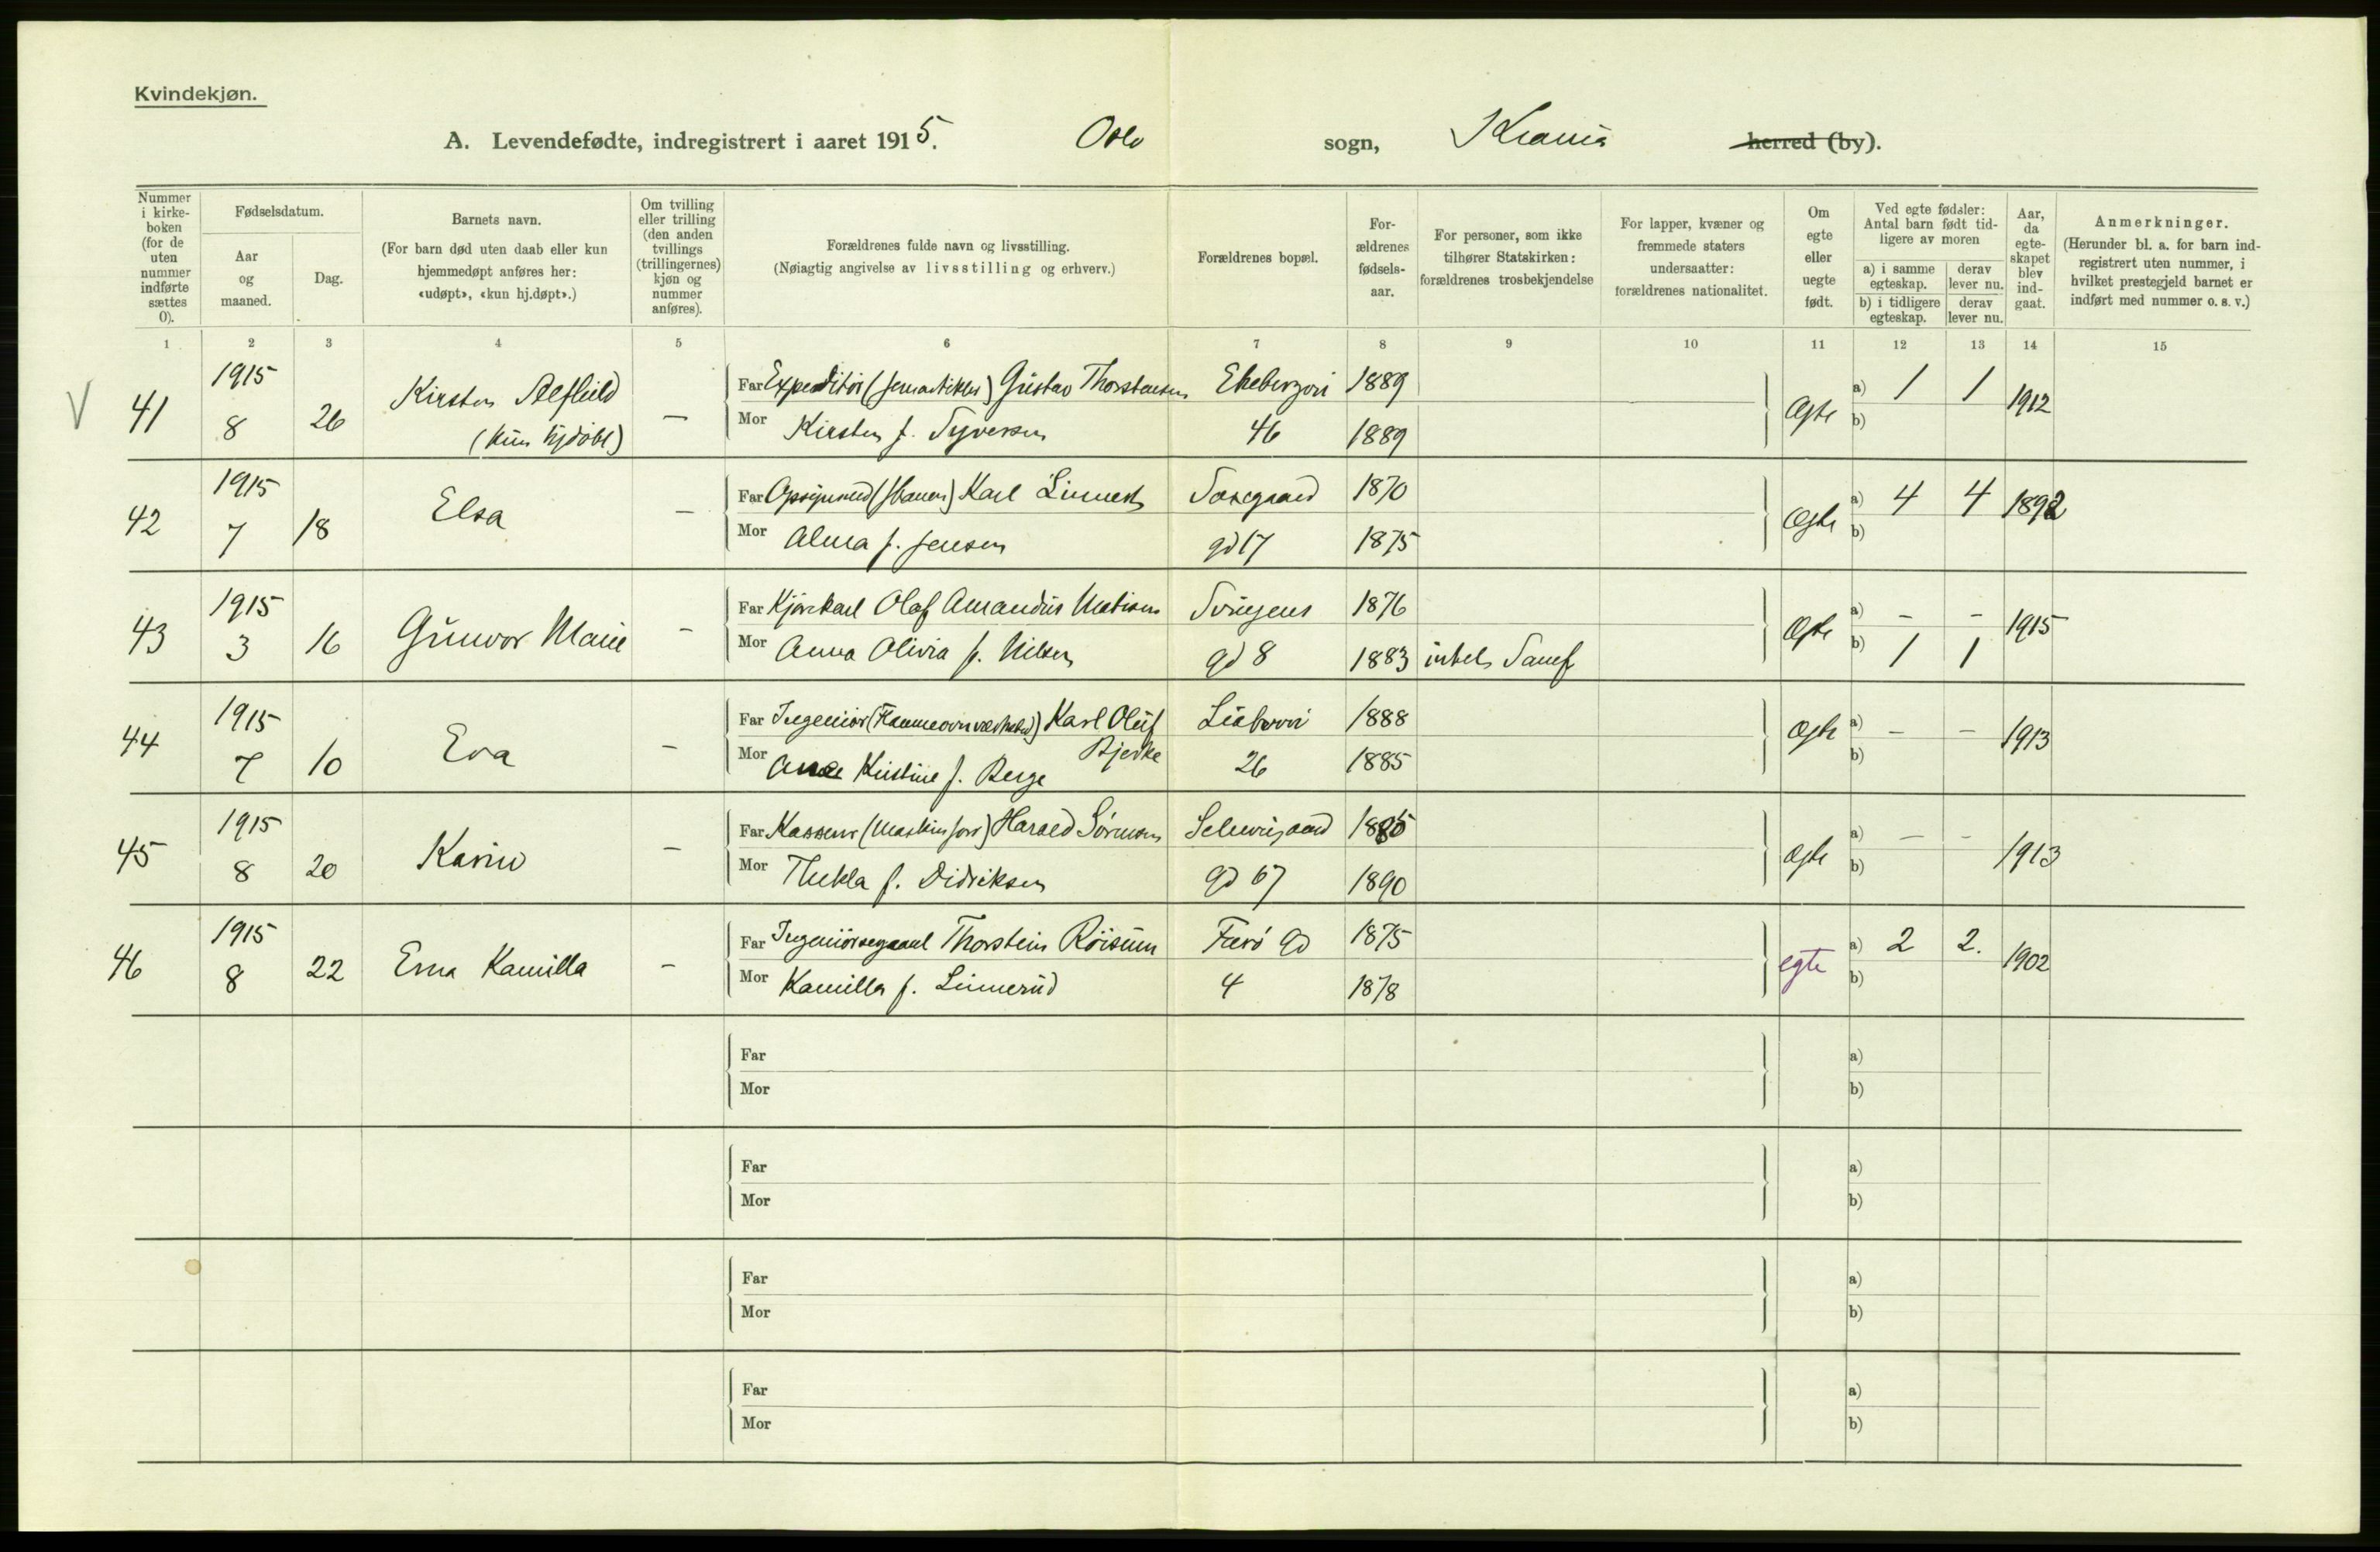 Kvindekjøn.
A. Levendefødte, indregistrert i aaret 1915. Oslo sogn, Krania herred (by).
Nummer i kirke-boken (for de uten nummer indførte sættes 0).
Fødselsdatum.
Aar og maaned.
Dag.
Barnets navn.
(For barn død uten daab eller kun hjemmedøpt anføres her: «udøpt», «kun hj.døpt».)
Om tvilling eller trilling (den anden tvillings (trillingernes) kjøn og nummer anføres).
Forældrenes fulde navn og livsstilling.
(Nøiagtig angivelse av livsstilling og erhverv.)
Forældrenes bopæl.
For-ældrenes fødsels-aar.
For personer, som ikke tilhører Statskirken: forældrenes trosbekjendelse
For lapper, kvæner og fremmede staters undersaatter: forældrenes nationalitet.
Om egte eller uegte født.
Ved egte fødsler: Antal barn født tid-ligere av moren
a) i samme egteskap.
derav lever nu.
b) i tidligere egteskap.
derav lever nu.
Aar, da egte-skapet blev ind-gaat.
Anmerkninger.
(Herunder bl. a. for barn ind-registrert uten nummer, i hvilket prestegjeld barnet er indført med nummer o. s. v.)
1 2 3 4 5 6 7 8 9 10 11 12 13 14 15
V 41 1915 8 26 Kirsten Alfhild (kun hjdöbt) — Far Expeditör Gustav Thorstensen Ekebergvei 1889 Ægte a) 1 1 1912
Mor Kirsten f. Syversen 46 1889 b)
42 1915 7 18 Elsa — Far Opsynsmd Karl 1870 Ægte a) 4 4 1892
Mor Alma f. Jensen gd 17 1875 b)
43 1915 3 16 Gunvor Marie - Far Kjörekarl Olaf Amandus 1876 Ægte a) - - 1915
Mor Anna Olivia f. Nilsen gd 8 1883 b) 1 1
44 1915 7 10 Eva — Far Ingeniör Karl Oluf Bjerke 1888 Ægte a) - - 1913
Mor Kristine f. Berge 26 1885 b)
45 1915 8 20 Karin — Far Harald Sörensen 1885 Ægte a) — - 1913
Mor Thekla f. Didriksen gd 67 1890 b)
46 1915 8 22 Erna Kamilla - Far Thorstein Röisum Færö Gd 1875 egte a) 2 2. 1902
Mor Kamilla f. Linnerud 4 1878 b)
Far a)
Mor b)
Far a)
Mor b)
Far a)
Mor b)
Far a)
Mor b)